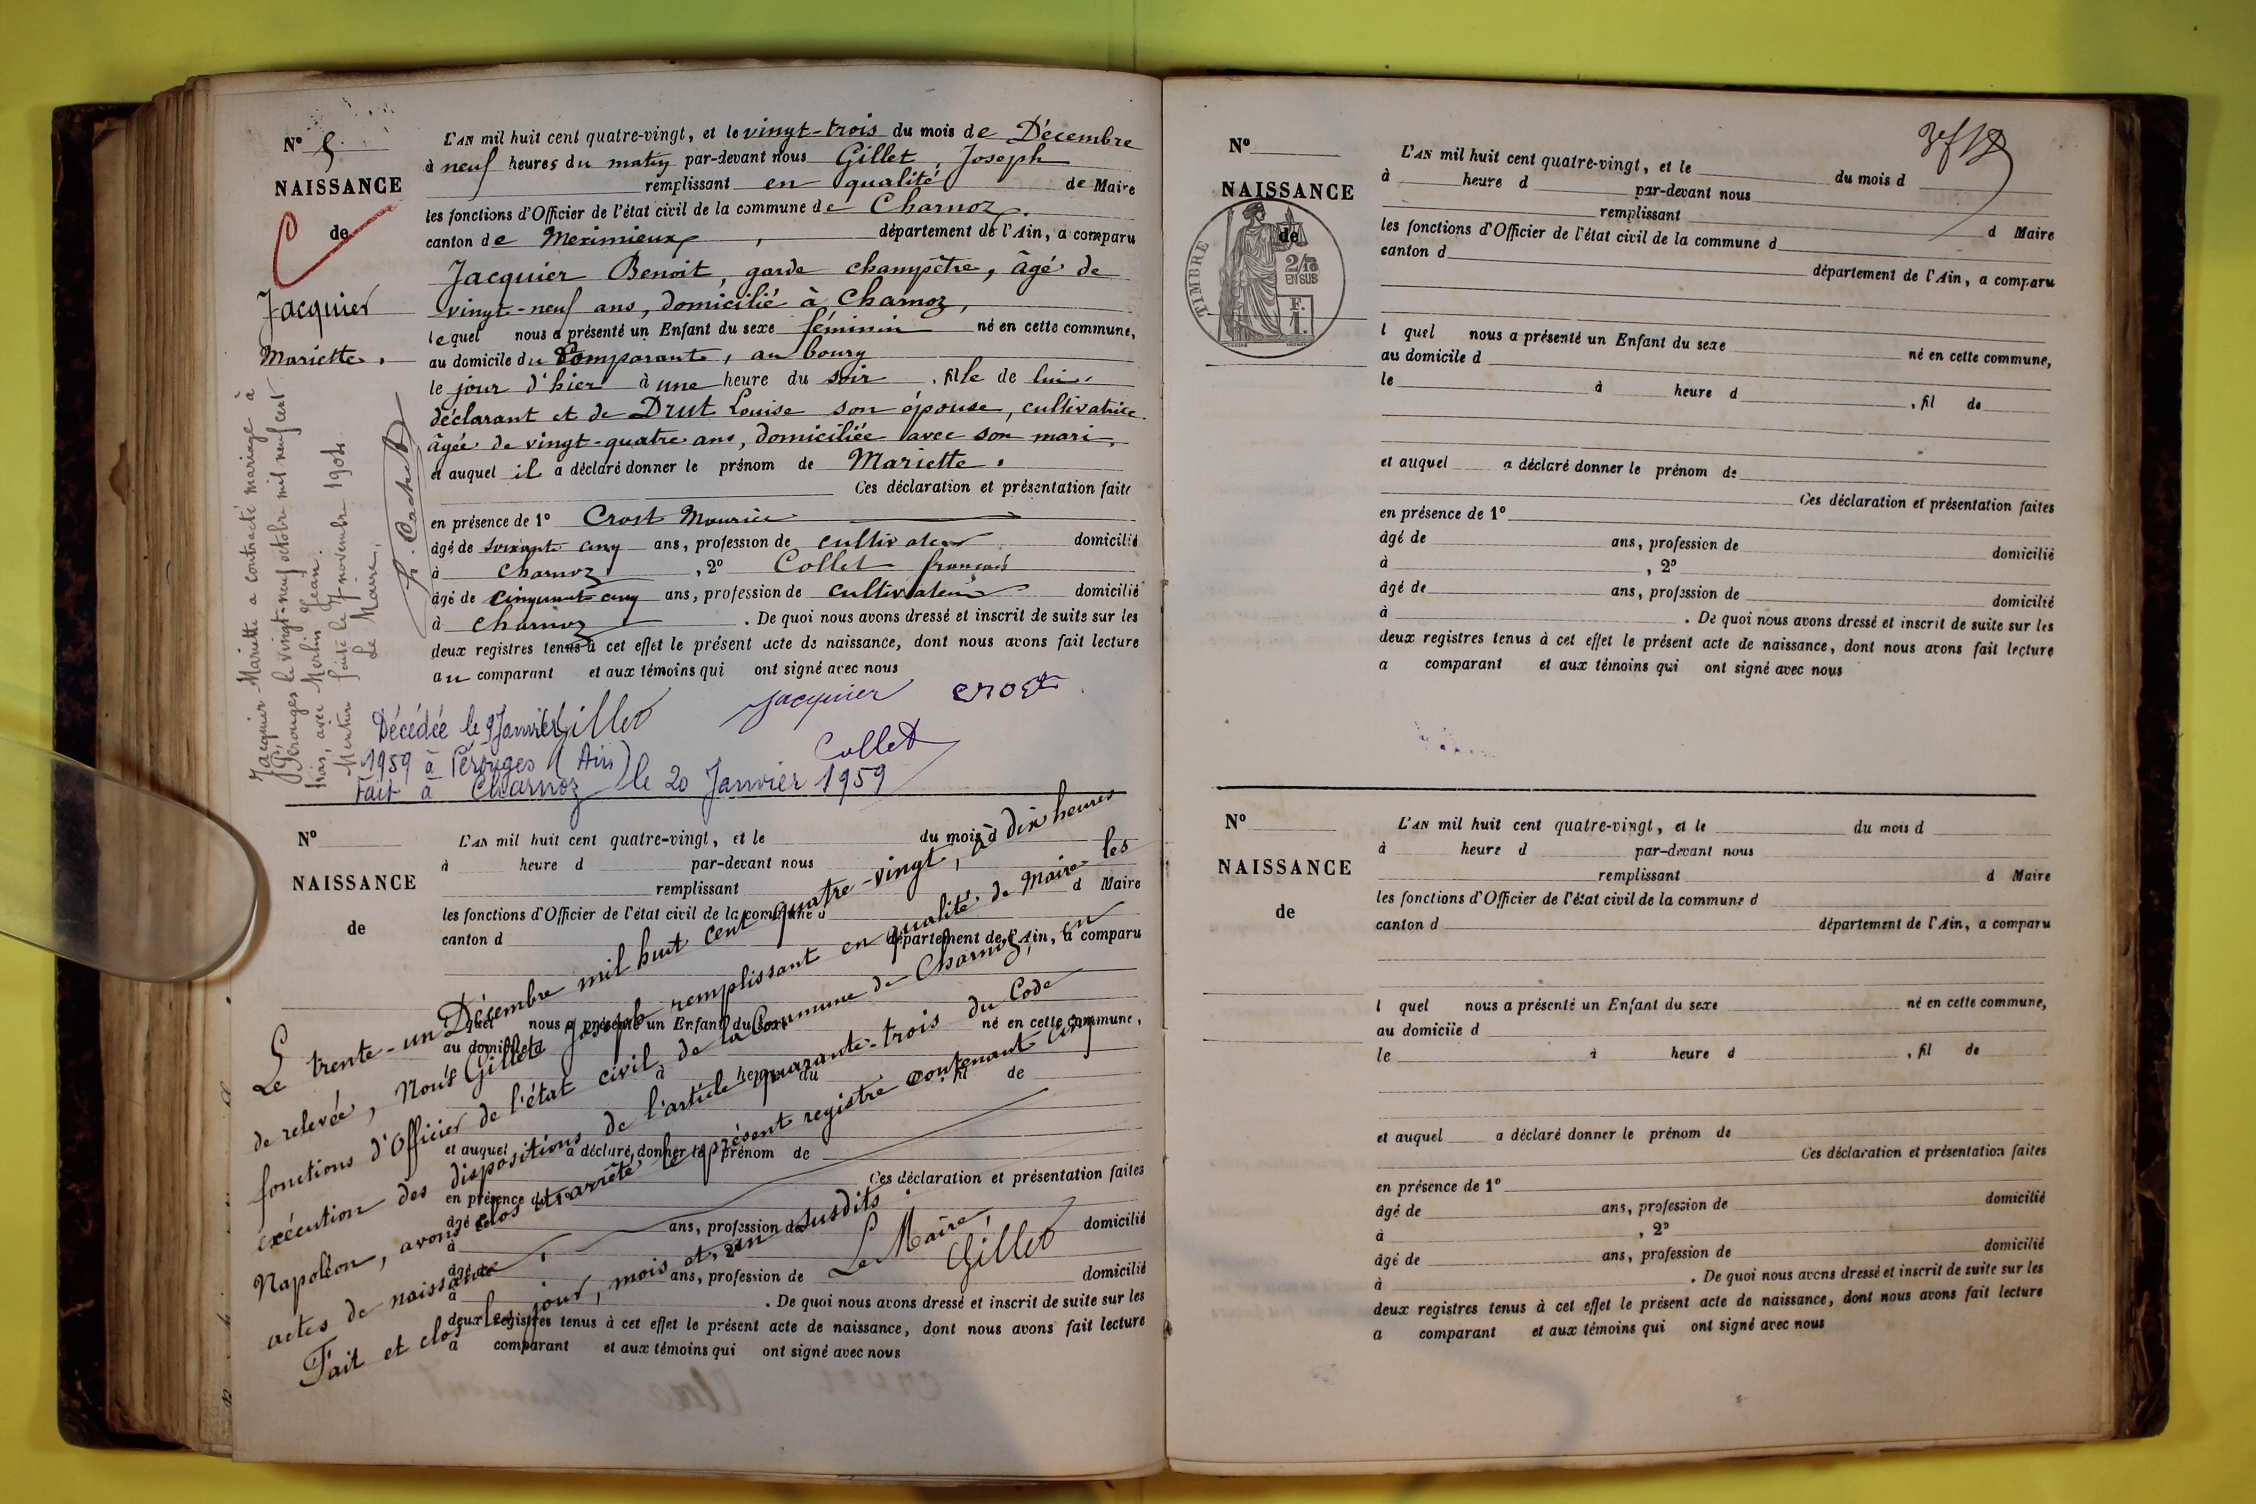 N° 5
NAISSANCE
de
Jacquier
Mariette.
L'AN mil huit cent quatre-vingt, et le vingt-trois du mois de Décembre
à neuf heures du matin par-devant nous Gillet, Joseph
remplissant en qualité de Maire
les fonctions d'Officier de l'état civil de la commune de Charnoz.
canton de Meximieux, département de l'Ain, a comparu
Jacquier Benoit, garde champêtre, âgé de
vingt-neuf ans, domicilié à Charnoz,
lequel nous a présenté un Enfant du sexe féminin né en cette commune,
au domicile du Comparant, au bourg
le jour d'hier à une heure du soir, fille de lui
déclarant et de Drut Louise son épouse, cultivatrice
âgée de vingt-quatre ans, domiciliée avec son mari,
et auquel il a déclaré donner le prénom de Mariette.
Ces déclaration et présentation faite
en présence de 1° Crost Maurice
âgé de soixante cinq ans, profession de cultivateur domicilié
à Charnoz, 2° Collet françois
âgé de cinquante cinq ans, profession de cultivateur domicilié
à Charnoz. De quoi nous avons dressé et inscrit de suite sur les
deux registres tenus à cet effet le présent acte de naissance, dont nous avons fait lecture
au comparant et aux témoins qui ont signé avec nous
Gillet Jacquier Crost
Collet
Jacquier Mariette a contracté mariage à
Pérouges le vingt-neuf octobre mil neuf cent
trois avec Merlin Jean.
Mention faite le 7 novembre 1904
Le Maire,
Décédée le 9 Janvier
1959 à Pérouges (Ain)
Fait à Charnoz le 20 Janvier 1959
N°
NAISSANCE
de
L'AN mil huit cent quatre-vingt, et le du mois d
à heure d par-devant nous
remplissant d Maire
les fonctions d'Officier de l'état civil de la commune d
canton d département de l'Ain, a comparu
l quel nous a présenté un Enfant du sexe né en cette commune,
au domicile d
le à heure du , fil de
et auquel a déclaré donner le prénom de
Ces déclaration et présentation faites
en présence de 1°
âgé de ans, profession de domicilié
à , 2°
âgé de ans, profession de domicilié
à . De quoi nous avons dressé et inscrit de suite sur les
deux registres tenus à cet effet le présent acte de naissance, dont nous avons fait lecture
a comparant et aux témoins qui ont signé avec nous
Le trente-un Décembre mil huit cent quatre-vingt, à dix heures
de relevée, Nous Gillet Joseph remplissant en qualité de Maire les
fonctions d'Officier de l'état civil de la Commune de Charnoz, en
exécution des dispositions de l'article quarante-trois du Code
Napoléon, avons clos et arrêté le présent registre contenant cinq
actes de naissance.
Fait et clos les jour, mois et an susdits.
Le Maire,
Gillet
N°
NAISSANCE
de
TIMBRE
2/10
EN SUS
F.
1.
L'AN mil huit cent quatre-vingt, et le du mois d
à heure d par-devant nous
remplissant d Maire
les fonctions d'Officier de l'état civil de la commune d
canton d département de l'Ain, a comparu
l quel nous a présenté un Enfant du sexe né en cette commune,
au domicile d
le à heure d , fil de
et auquel a déclaré donner le prénom de
Ces déclaration et présentation faites
en présence de 1°
âgé de ans, profession de domicilié
à , 2°
âgé de ans, profession de domicilié
à . De quoi nous avons dressé et inscrit de suite sur les
deux registres tenus à cet effet le présent acte de naissance, dont nous avons fait lecture
a comparant et aux témoins qui ont signé avec nous
N°
NAISSANCE
de
L'AN mil huit cent quatre-vingt, et le du mois d
à heure d par-devant nous
remplissant d Maire
les fonctions d'Officier de l'état civil de la commune d
canton d département de l'Ain, a comparu
l quel nous a présenté un Enfant du sexe né en cette commune,
au domicile d
le à heure d , fil de
et auquel a déclaré donner le prénom de
Ces déclaration et présentation faites
en présence de 1°
âgé de ans, profession de domicilié
à , 2°
âgé de ans, profession de domicilié
à . De quoi nous avons dressé et inscrit de suite sur les
deux registres tenus à cet effet le présent acte de naissance, dont nous avons fait lecture
a comparant et aux témoins qui ont signé avec nous